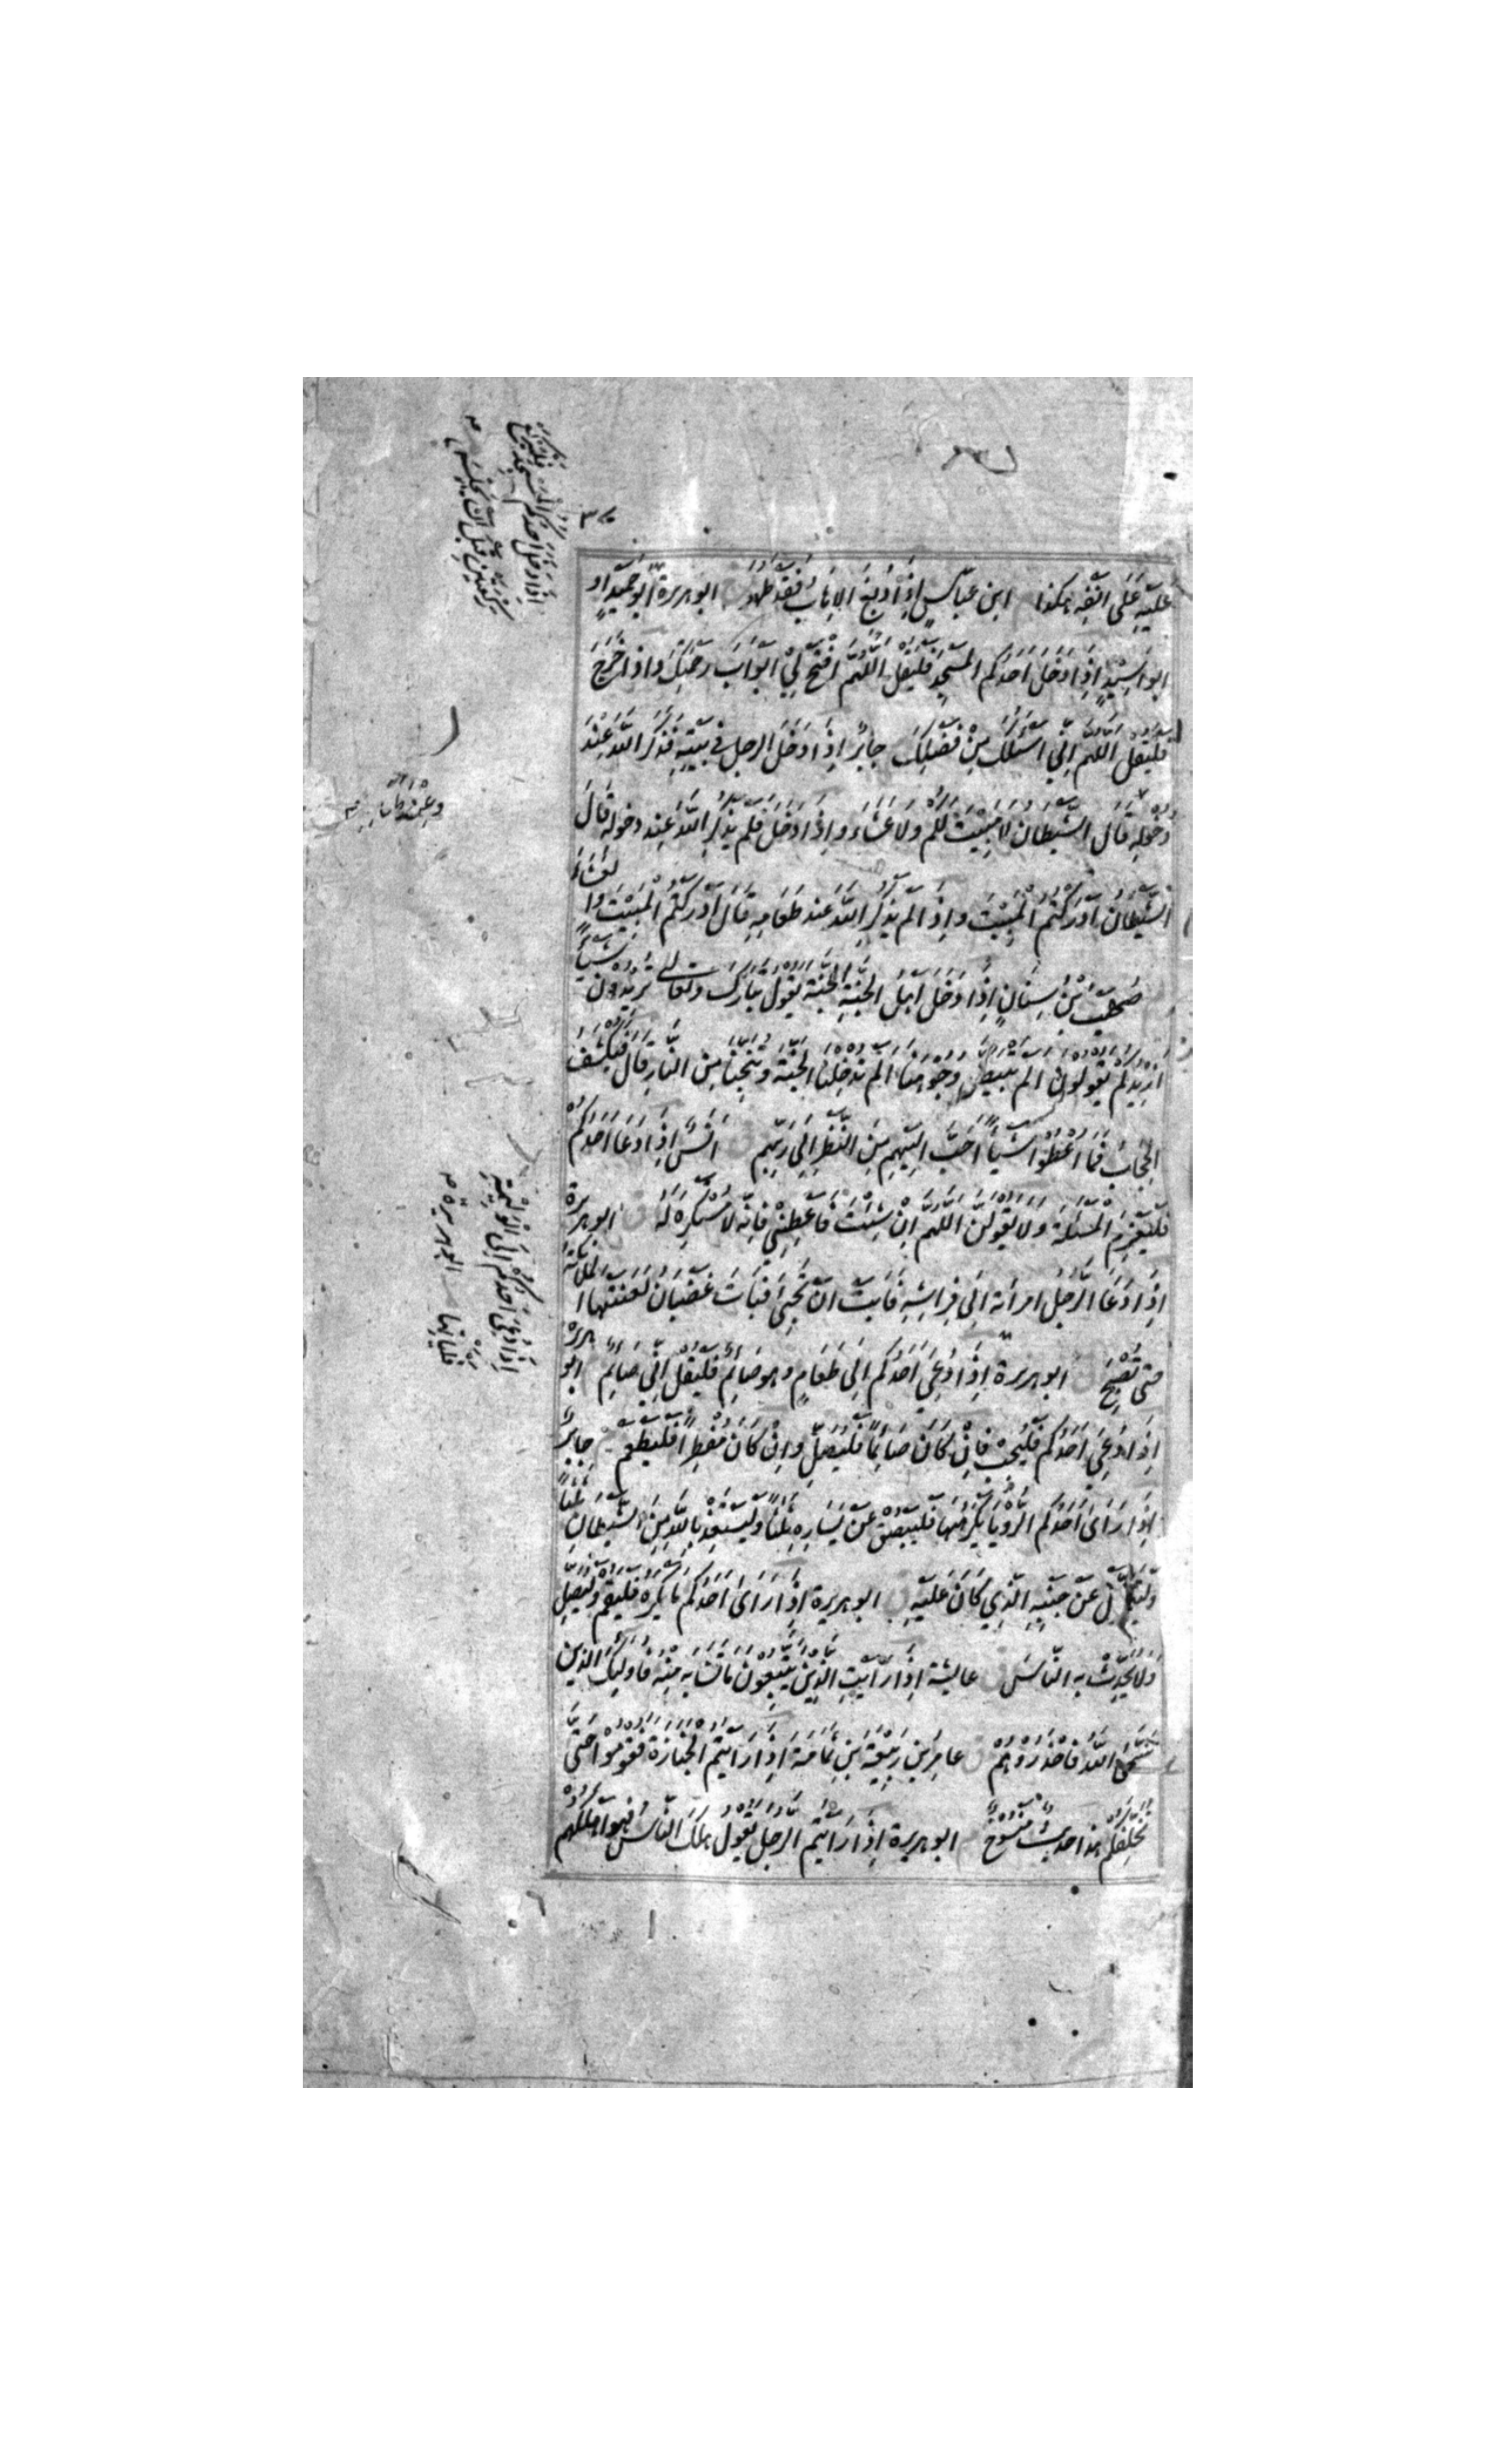 ٣٧
عَلَيْهِ عَلَى اَنْفِه هكذا ابن عَبّاسٍ اِذَا دُبِغَ الاِهَابُ فَقَدْ طَهُرَ ابو هريرة اَبُو حُمَيْدٍ اَو
ابو اُسَيْدٍ اِذَا دَخَلَ اَحَدُكُم المَسْجِدَ فَلْيَقُلْ اَللّٰهُمَّ افْتَحْ لِيْ اَبْوَابَ رَحْمَتِكَ وَاِذَا خَرَجَ
فَلْيَقُلْ اَللّٰهُمَّ اِنِّيْ اَسْئَلُكَ مِنْ فَضْلِكَ جابرٌ اِذَا دَخَلَ الرجل في بَيْتِهِ فَذَكَرَ اللهَ عِنْدَ
دُخُوْلِهِ قَالَ الشَّيْطَان لَا مَبِيْتَ لَكُمْ وَلَا عَشَاءَ وَاِذَا دَخَلَ فَلَمْ يَذْكُرِ اللهَ عِنْد دخوله قَالَ
الشَّيْطَانُ اَدْرَكْتُمُ الْمَبِيْتَ وَاِذَا لَمْ يَذْكُرِ اللهَ عِند طَعَامِهِ قَالَ اَدْرَكْتُمُ الْمَبِيْتَ وَالعَشَاءَ
صُهَيْبُ بْنُ سِنَانٍ اِذَا دَخَلَ اَهْلُ الجَنَّةِ الْجَنَّةَ يَقُوْلُ تَبَارَكَ وَتَعَالٰى تُرِيْدُوْنَ شَيْئًا
اَزِيْدُكُمْ يَقُوْلُوْنَ اَلَمْ تُبَيِّضْ وُجُوْهَنَا اَلَمْ تُدْخِلْنَا الجَنَّةَ وَتُنَجِّنَا مِنَ النَّارِ قَالَ فَيَكْشِفُ
الحِجَابَ فَمَا اُعْطُوْا شَيْئًا اَحَبَّ اِلَيْهِمْ مِنَ النَّظَرِ اِلَى رَبِّهِم اَنَسٌ اِذَا دَعَا اَحَدُكُمْ
فَلْيَعْزِمِ الْمَسْئَلَةَ وَلَا يَقُوْلَنَّ اَللّٰهُمَّ اِنْ شِئْتَ فَاَعْطِنِيْ فَاِنَّه لَا مُسْتَكْرِهَ لَهُ ق ابو هريرة
اِذَا دَعَا الرَّجُلُ امرأته اِلَى فِرَاشِهِ فَاَبَتْ اَنْ تَجِيْءَ فَبَاتَ غَضْبَانَ لَعَنَتْهَا الْمَلَائِكَةُ
حتى تُصْبِحَ ابو هريرة اِذَا دُعِيَ اَحَدُكُم اِلَى طَعَامٍ وهو صَائِمٌ فَلْيَقُلْ اِنِّي صَائِم ابو هريرة
اِذَا دُعِيَ اَحَدُكُم فَلْيُجِبْ فَاِنْ كَانَ صَائِمًا فَلْيُصَلِّ وَاِنْ كَانَ مُفْطِرًا فَلْيَطْعَمْ جابرٌ
اِذَا رَأَى اَحَدُكُم الرُّوْيَا يَكْرَهُهَا فَلْيَبْصُقْ عَنْ يَسَارِهِ ثَلٰثًا وَلْيَسْتَعِذْ بِاللهِ مِنَ الشَّيْطَانِ ثَلٰثًا
وَلْيَتَحَوَّلْ عَنْ جَنْبِهِ الَّذِي كَانَ عَلَيْهِ ق ابو هريرة اِذَا رَأَى اَحَدُكُم مَا يَكْرَه فَلْيَقُمْ وَلْيُصَلِّ
وَلَا يُحَدِّثْ بِهِ النَّاسَ ق عايشة اِذَا رَاَيْتِ الَّذِيْنَ يَتَّبِعُوْنَ مَا تَشَابَهَ مِنْهُ فَاُولٰئِكَ الَّذِيْن
سَمَّى اللهُ فَاحْذَرُوْهُمْ ق عامر بن رَبِيْعَةَ اِذَا رَاَيْتُمُ الْجَنَازَةَ فَقُوْمُوْا حَتَّى
تُخَلِّفَكُمْ هذا حديثٌ مَنْسُوْخٌ ابو هريرة اِذَا رَاَيْتُمُ الرجل يَقُوْلُ هَلَكَ النَّاسُ فَهُوَ اَهْلَكُهُمْ
اذا دخل احدكم المسجد فليركع
ركعتين قبل ان يجلس
وعِنْدَ طَعَامِهِ
اِذَا دُعِيَ اَحَدُكُمْ اِلَى الْوَلِيْمَةِ
فليأتها ابو هريرة